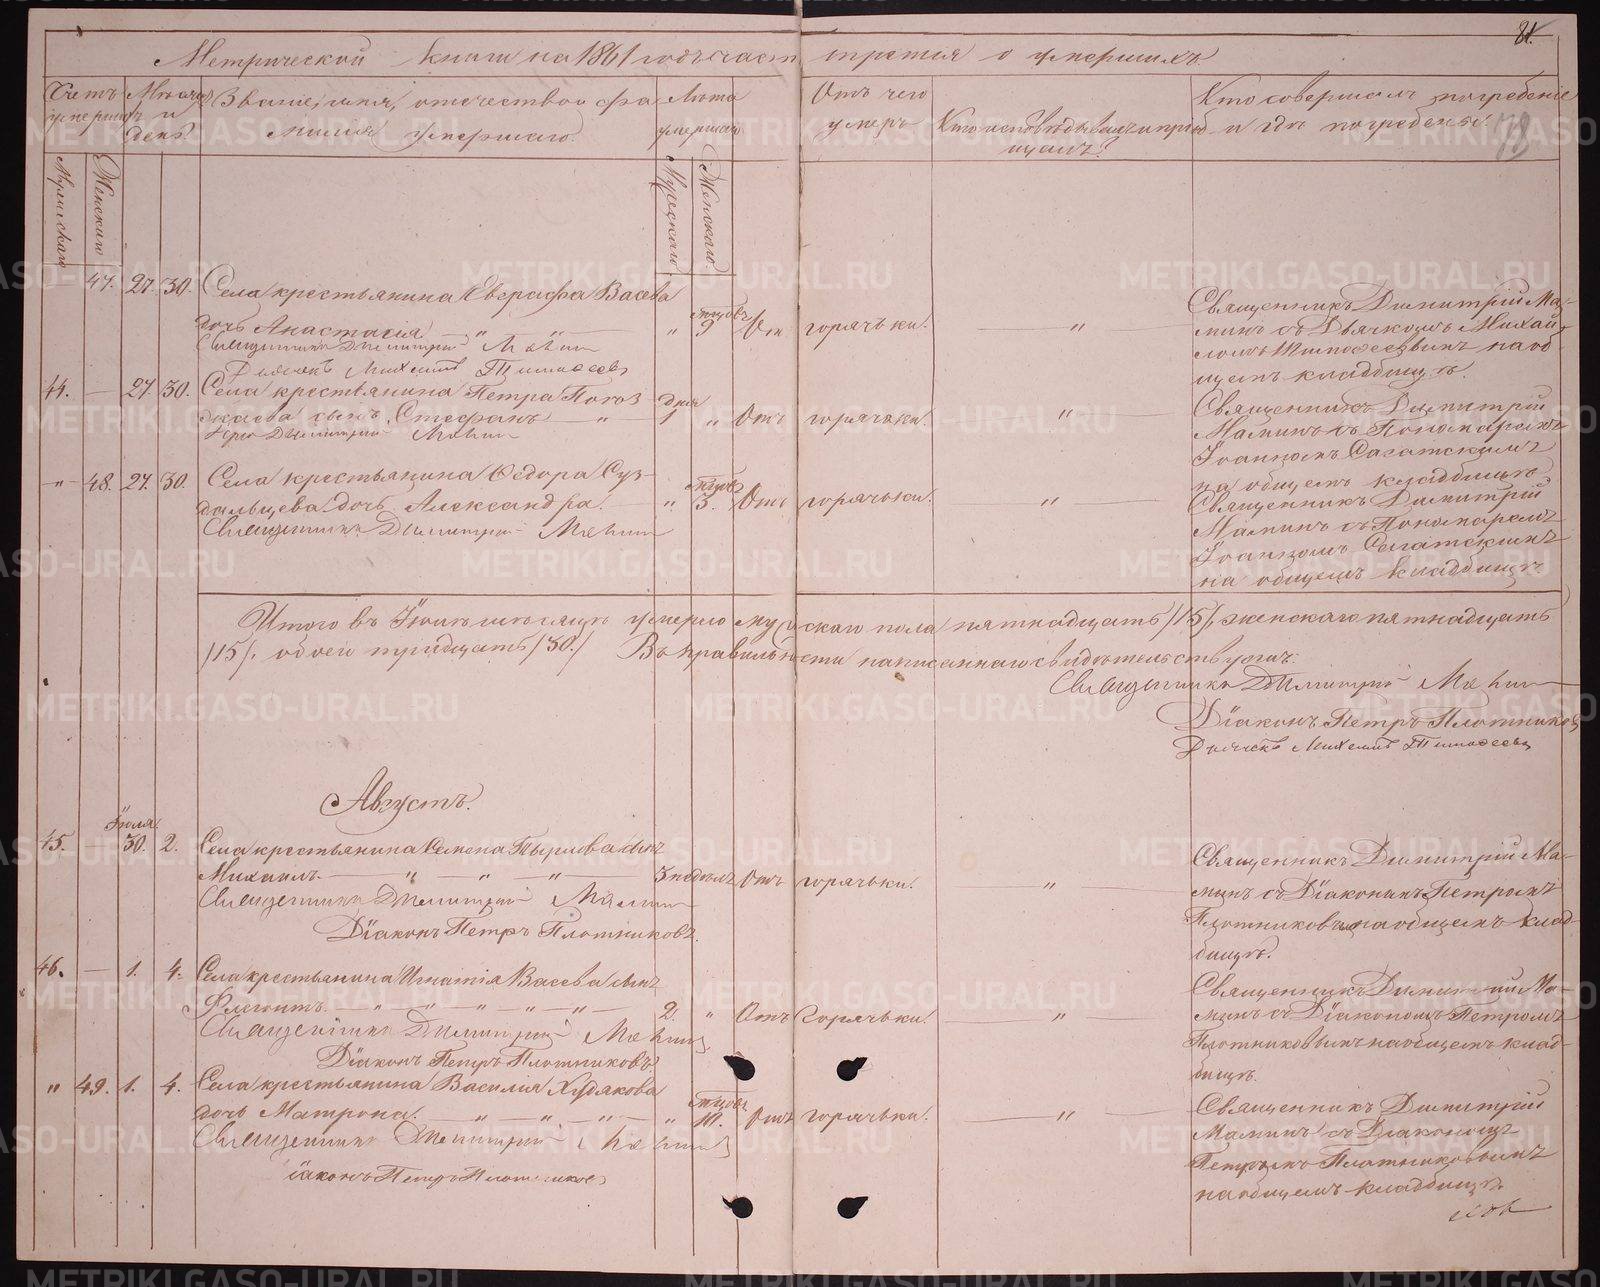 81.
78
Метрической книги на 1861 годъ часть третія о умершихъ
Счетъ умершихъ
Мѣсяцъ и день
Званіе, имя, отчество и фамилія умершаго.
Лѣта умершаго
Отъ чего умеръ
Кто исповѣдывалъ и пріобщалъ?
Кто совершалъ погребеніе и гдѣ погребены.
Мужескаго
Женскаго
Мужескаго
Женскаго.
47. 27. 30. Села крестьянина Евграфа Васева
дочь Анастасія — " — " — " годовъ 9 Отъ горячьки. — " —
Священникъ Димитрій Маминъ
Дьячекъ Михаилъ Тимофеевъ
Священникъ Димитрій Ма-
минъ съ Дьячкомъ Михаи-
ломъ Тимофеевымъ на об-
щемъ кладбищѣ.
44. — 27 30. Села крестьянина Петра Погоз
жаева сынъ Стефанъ — " дня 1 " Отъ горячьки. "
Димитрій Маминъ
Священникъ Димитрій
Маминъ съ Пономаремъ
Іоанномъ Сагатскимъ
на общемъ кладбищѣ
" 48. 27. 30. Села крестьянина Ѳедора Суз-
дальцева дочь Александра. — " годов 3. Отъ горячьки. — " —
Священникъ Димитрій Маминъ
Священникъ Димитрій
Маминъ съ Пономаремъ
Іоанномъ Сагатскимъ
на общемъ кладбищѣ.
Итого въ Іюлѣ мѣсяцѣ умерло мужскаго пола пятнадцать /15/, женскаго пятнадцать
/15/. обоего тридцать /30./ Въ правильности написаннаго свидѣтельствуемъ:
Священникъ Димитрій Маминъ
Діаконъ Петръ Плотниковъ
Дьячекъ Михаилъ Тимофеевъ
Августъ.
Іюля
45. — 30. 2. Села крестьянина Семена Пырлова сынъ
Михаилъ. — " — " — " — 3 недѣль Отъ горячьки. — " —
Священникъ Димитрій Маминъ
Діаконъ Петръ Плотниковъ.
Священникъ Димитрій Ма-
минъ съ Діакономъ Петромъ
Плотниковымъ на общемъ клад-
бищѣ.
46. — 1. 4. Села крестьянина Игнатія Васева сынъ
Флегонтъ. — " — " — " — " — " 2. " Отъ Горячьки. — " —
Священникъ Димитрій Маминъ
Діаконъ Петръ Плотниковъ
Священникъ Димитрій Ма-
минъ съ Діакономъ Петромъ
Плотниковымъ на общемъ клад-
бищѣ.
" 49. 1. 4. Села крестьянина Василія Худякова
дочь Матрона. — " — " — " — " годовъ 10. Отъ горячьки. — " —
Священникъ Димитрій Маминъ
Діаконъ Петръ Плотниковъ
Священникъ Димитрій
Маминъ съ Діакономъ
Петромъ Плотниковымъ
на общемъ кладбищѣ.
METRIKI.GASO-URAL.RU